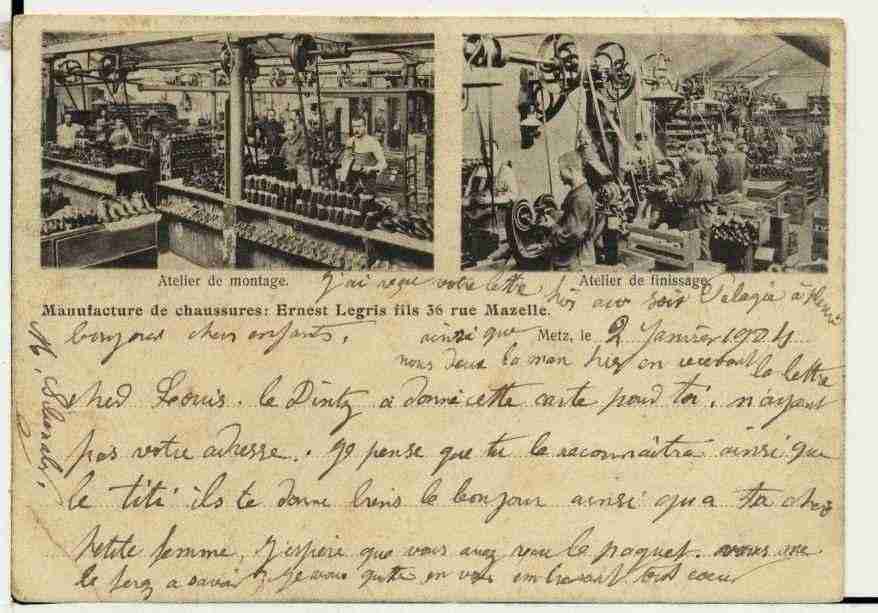 Atelier de montage.
Atelier de finissage.
j'ai reçu votre lettre hier au soir Pelagie à
Manufacture de chaussures: Ernest Legris fils 36 rue Mazelle.
bonjour chers enfants. ainsi que
Metz, le 2 Janvier 1904
nous deux la man hier en recevant la lettre
cher Louis. le a donné cette carte pour toi. n'ayant
pas votre adresse. je pense que tu le reconnaîtra ainsi que
le titi ils te donne biens le bonjour ainsi qu a ta cher
petite femme, j'espère que vous avez recu le paquet. vous me
le ferez a savoir je vous quitte en vous embrassant tous